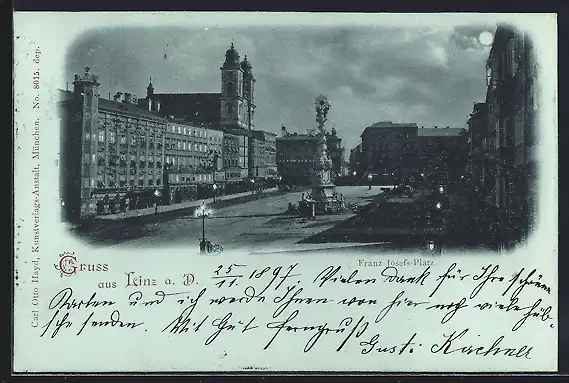 Carl Otto Hayd, Kunstverlags-Anstalt, München. No. 8015. dep.
Franz Josefs-Platz.
Gruss aus Linz a. D. 25/11 1897 Vielen Dank für Ihre schönen
Karten und ich werde Ihnen von hier noch viele hüb-
sche senden. Mit Gut ferngruß
Gusti Kirchner